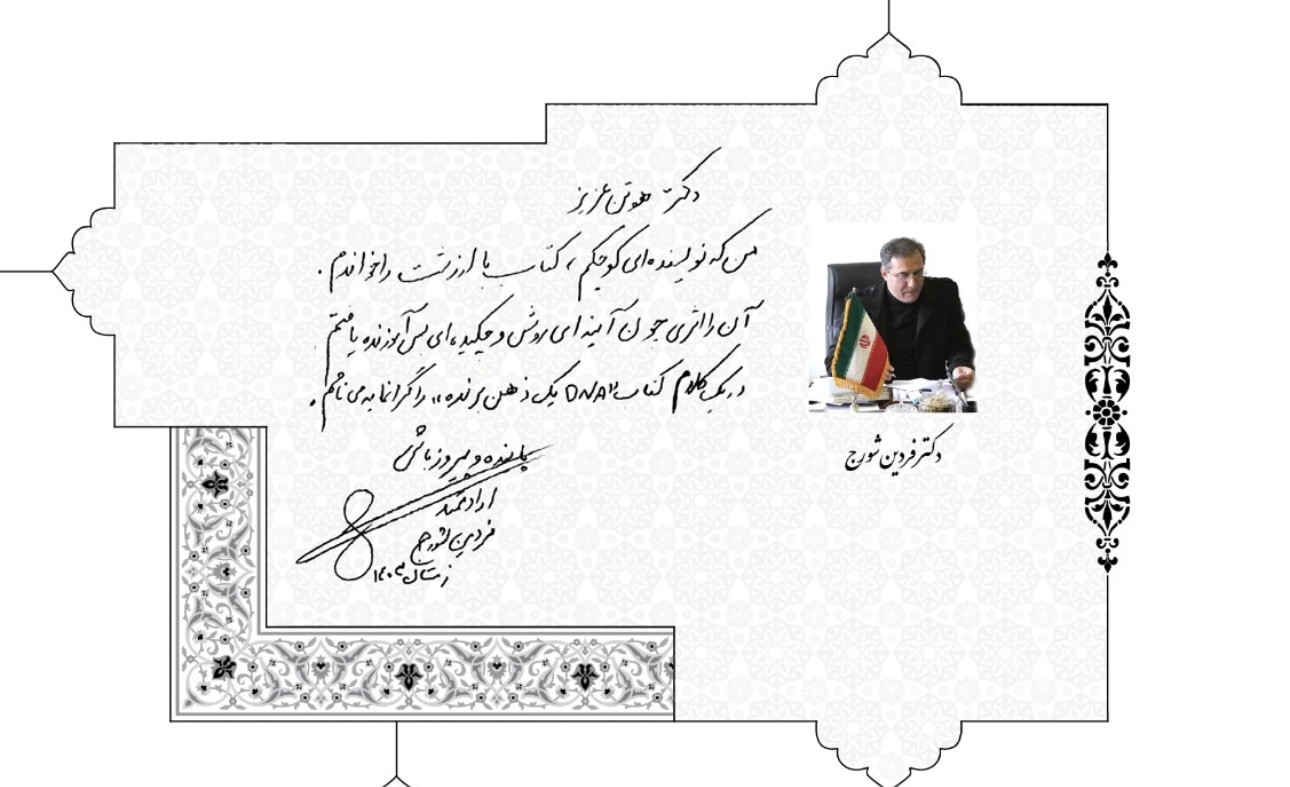 دکتر هوتن عزیز
من که نویسنده‌ای کوچکم، کتاب با ارزشت را خواندم.
آن را اثری چون آینه‌ای روشن و چکیده‌ای بس آموزنده یافتم
در یک کلام کتاب "DNA یک ذهن برنده" را گرانمایه می‌نامم.
پاینده و پیروز باشی
ارادتمند
فردین شورج
زمستان ۱۴۰۳
دکتر فردین شورج